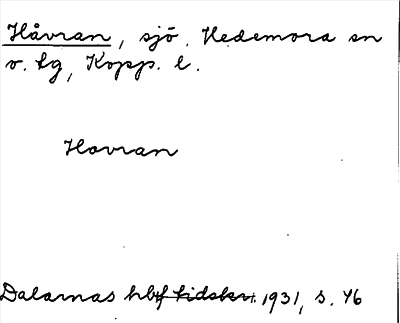 Håvran, sjö. Hedemora sn
v. tg, Kopp. l.
Hovran
Dalarnas hbf tidskr. 1931, s. 46